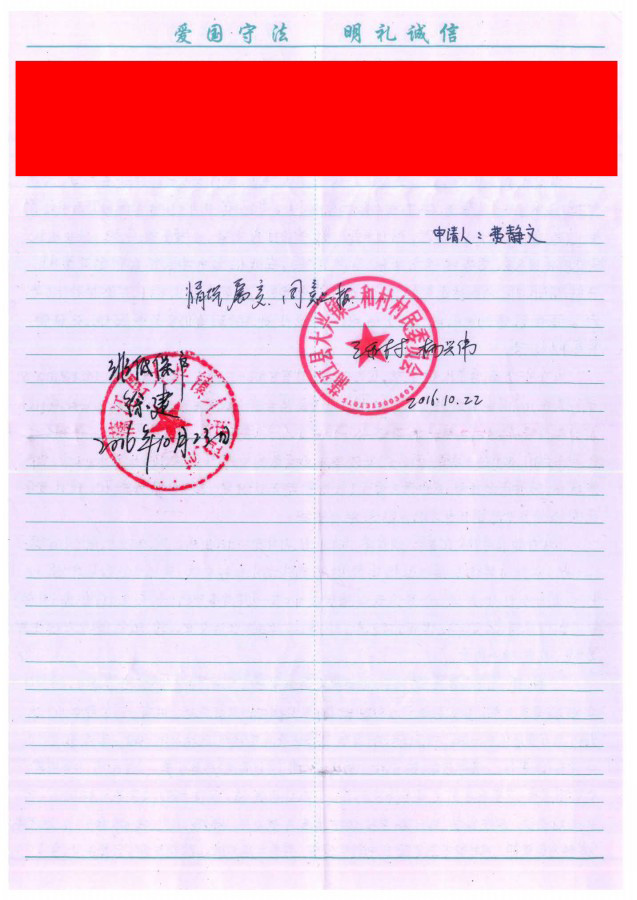 爱国守法 明礼诚信
申请人：黄静文
情况属实、同意上报
蒲江县大兴镇三和村村民委员会
三和村 杨兴伟
5101315003603
2016.10.22
徐建
2016年10月23日